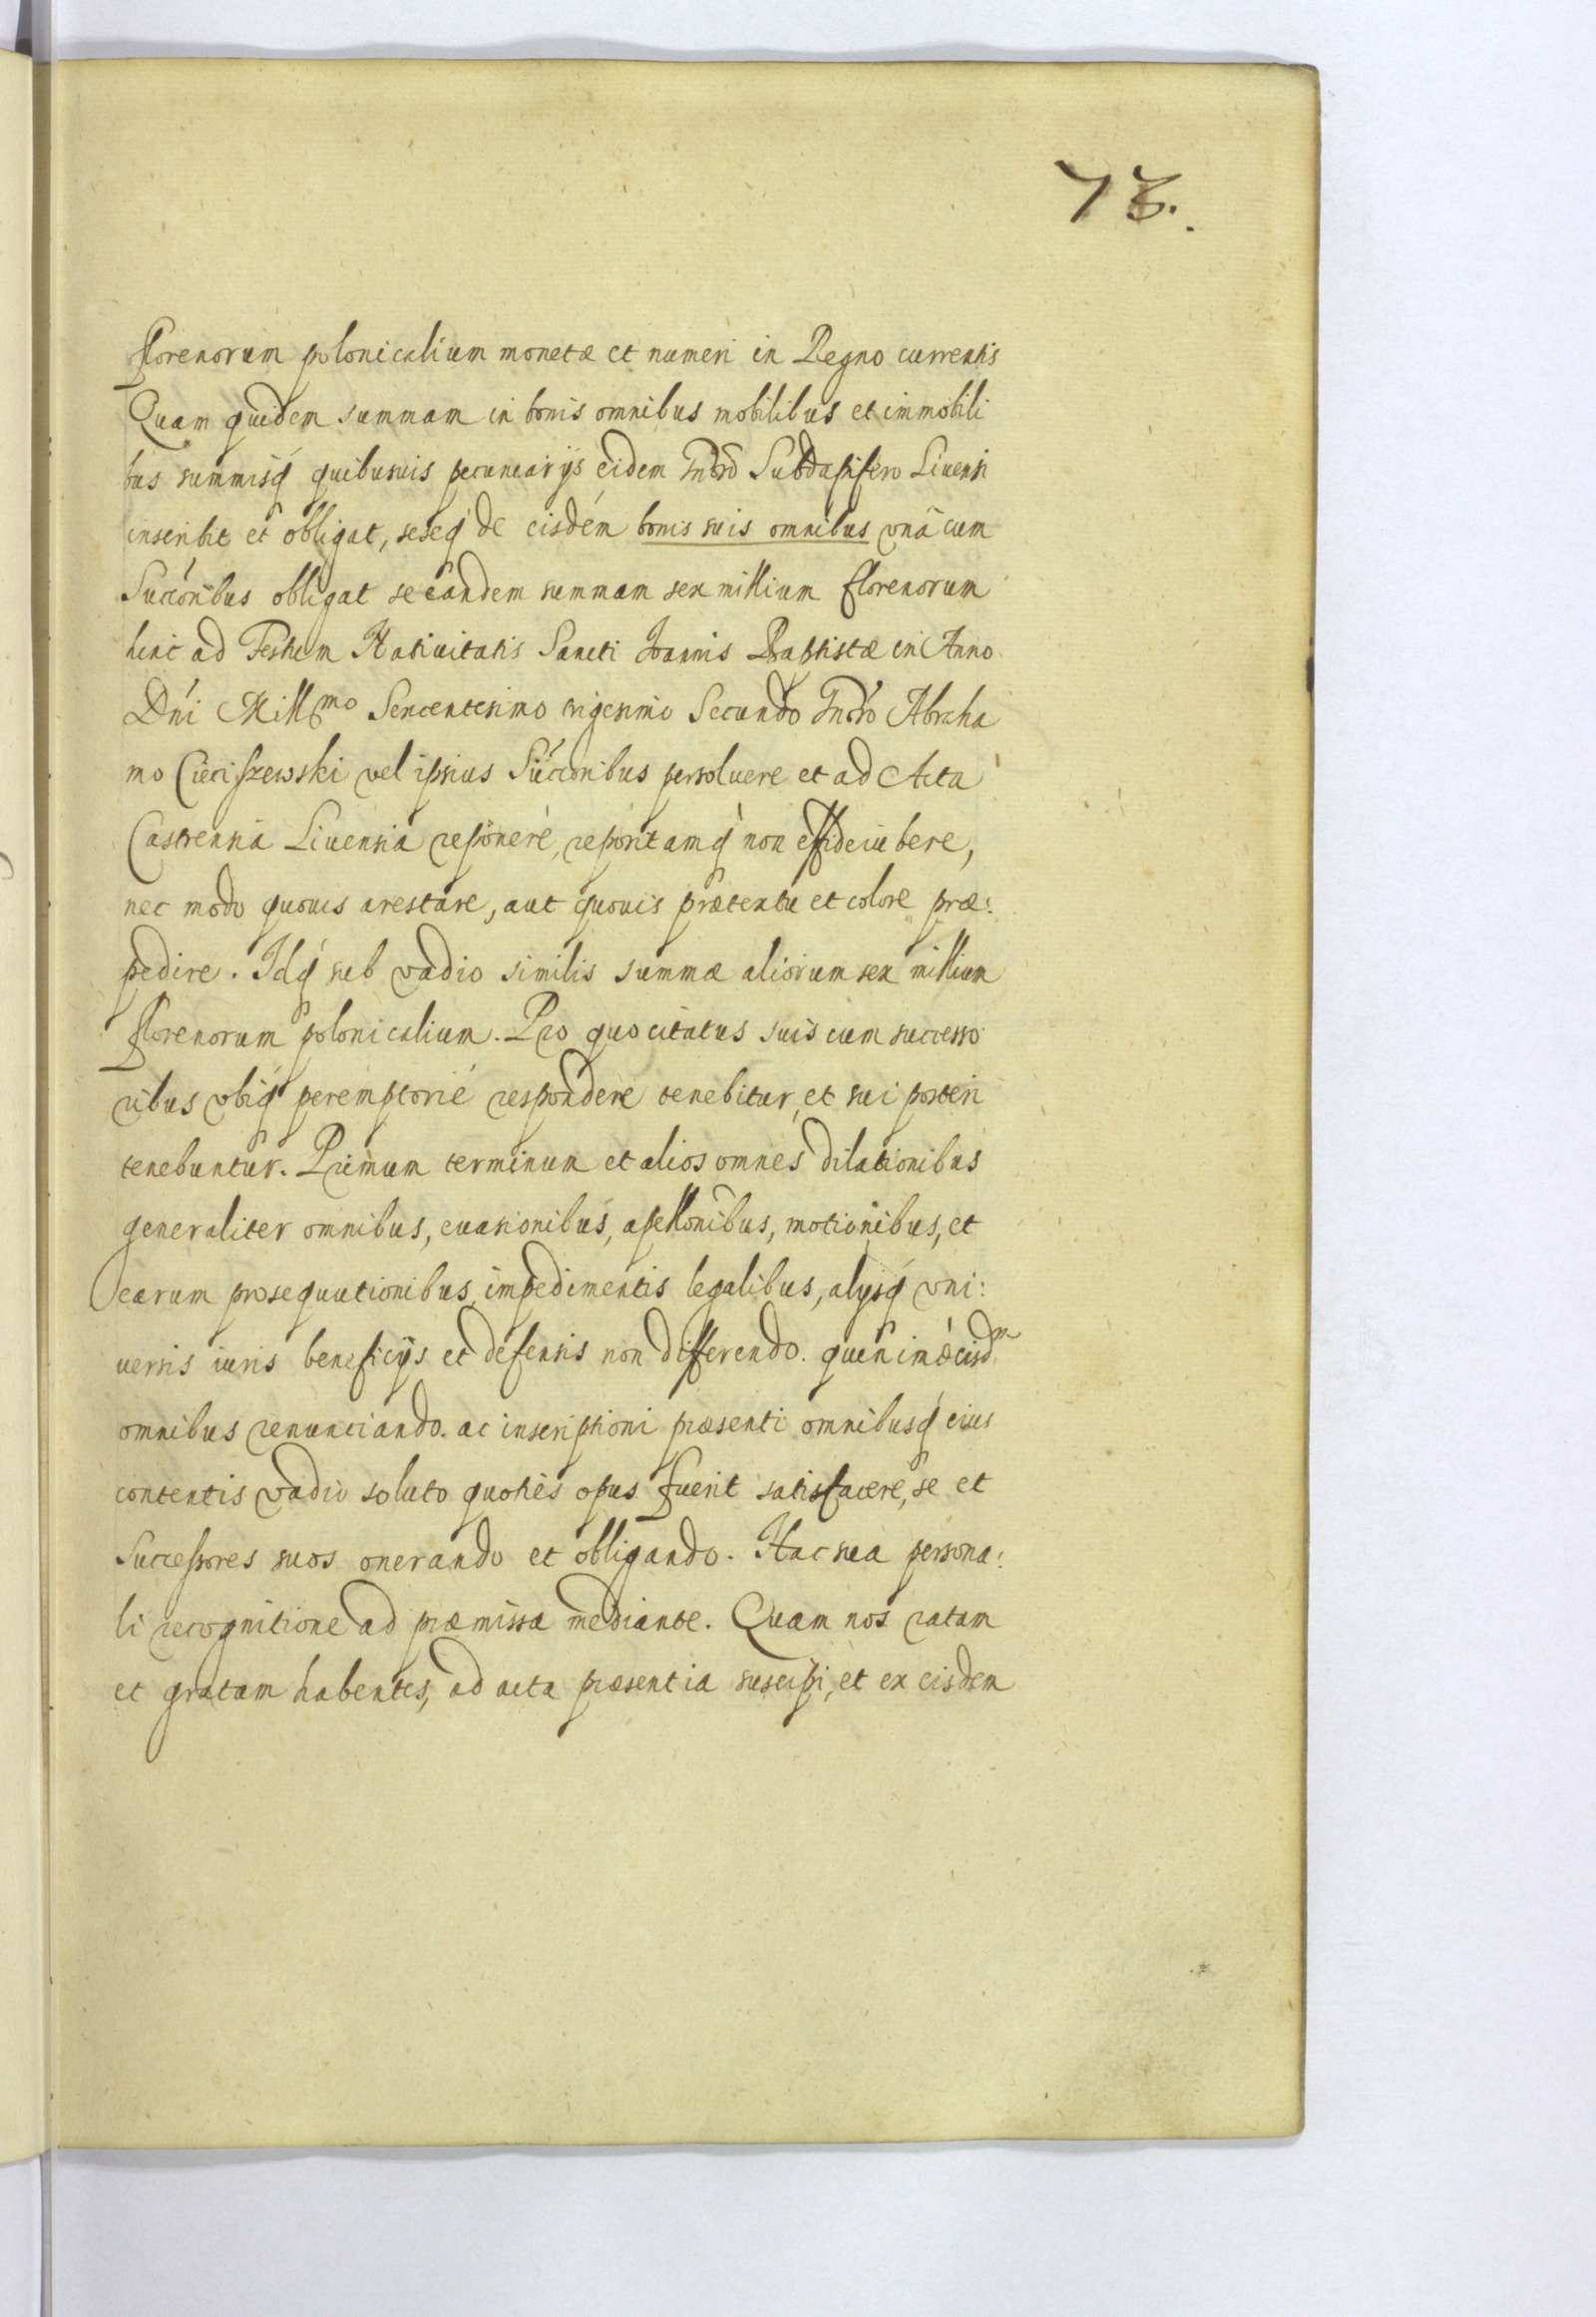 73.
florenorum polonicalium monetæ et numeri in Regno currentis
Quam quidem summam in bonis omnibus mobilibus et immobili
bus summisq́ quibusuis pecuniarijs eidem Subdapifero Liuensi
inscribit et obligat, seseq́ de eisdém bonis suis omnibus vnâ cum
Succoribus obligat se eandem summam sex millium florenorum
hinc ad Festum Natiuitatis Sancti Ioannis Baptistæ in Anno
Dńi Mill͠mo Sexcentesimo vigesimo Secundo Abraha
mo Cieciszewski vel ipsius Succoribus persoluere et ad Acta
Castrensia Liuensia reponere, repositamq́ non
nec modo quouis arestare, aut quouis prætextu et colore præ:
pedire. Idq́ sub vadio similis summæ aliorum sex millium
florenorum polonicalium. Pro quo citatus suis cum successo
ribus vbiq́ peremptorié respondere tenebitur, et sui posteri
tenebuntur. Primum terminum et alios omnes dilationibus
generaliter omnibus, euasionibus, apellonibus, motionibus, et
earum prosequutionibus, impedimentis legalibus, alysq́ vni:
uersis iuris beneficijs et defensis non differendo. quin imò eisdm
omnibus renunciando. ac inscriptioni præsenti omnibusq́ eius
contentis vadio soluto quoties opus fuerit satisfacere, se et
Successores suos onerando et obligando. Hac sua persona:
li recognitione ad præmissa mediante. Quam nos ratam
et gratam habentes, ad acta præsentia suscipi, et ex eisdem